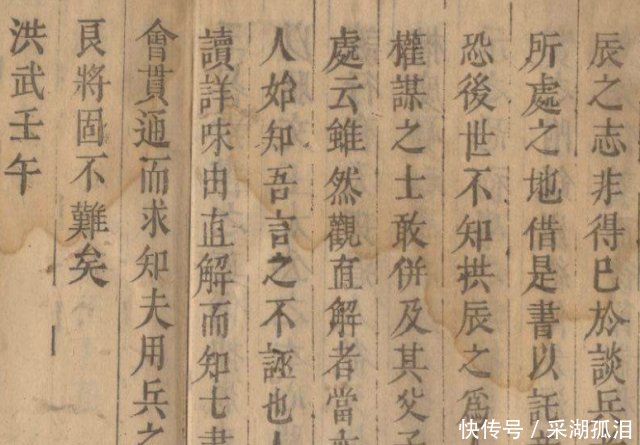 辰之志非得已於談兵
所處之地借是書以託
恐後世不知拱辰之爲
權謀之士敢併及其父子
處云雖然觀直解者當
人始知吾言之不誣也
讀詳味由直解而知七書
會貫通而求知夫用兵之
良將固不難矣
洪武壬午
快传号／采湖孤泪